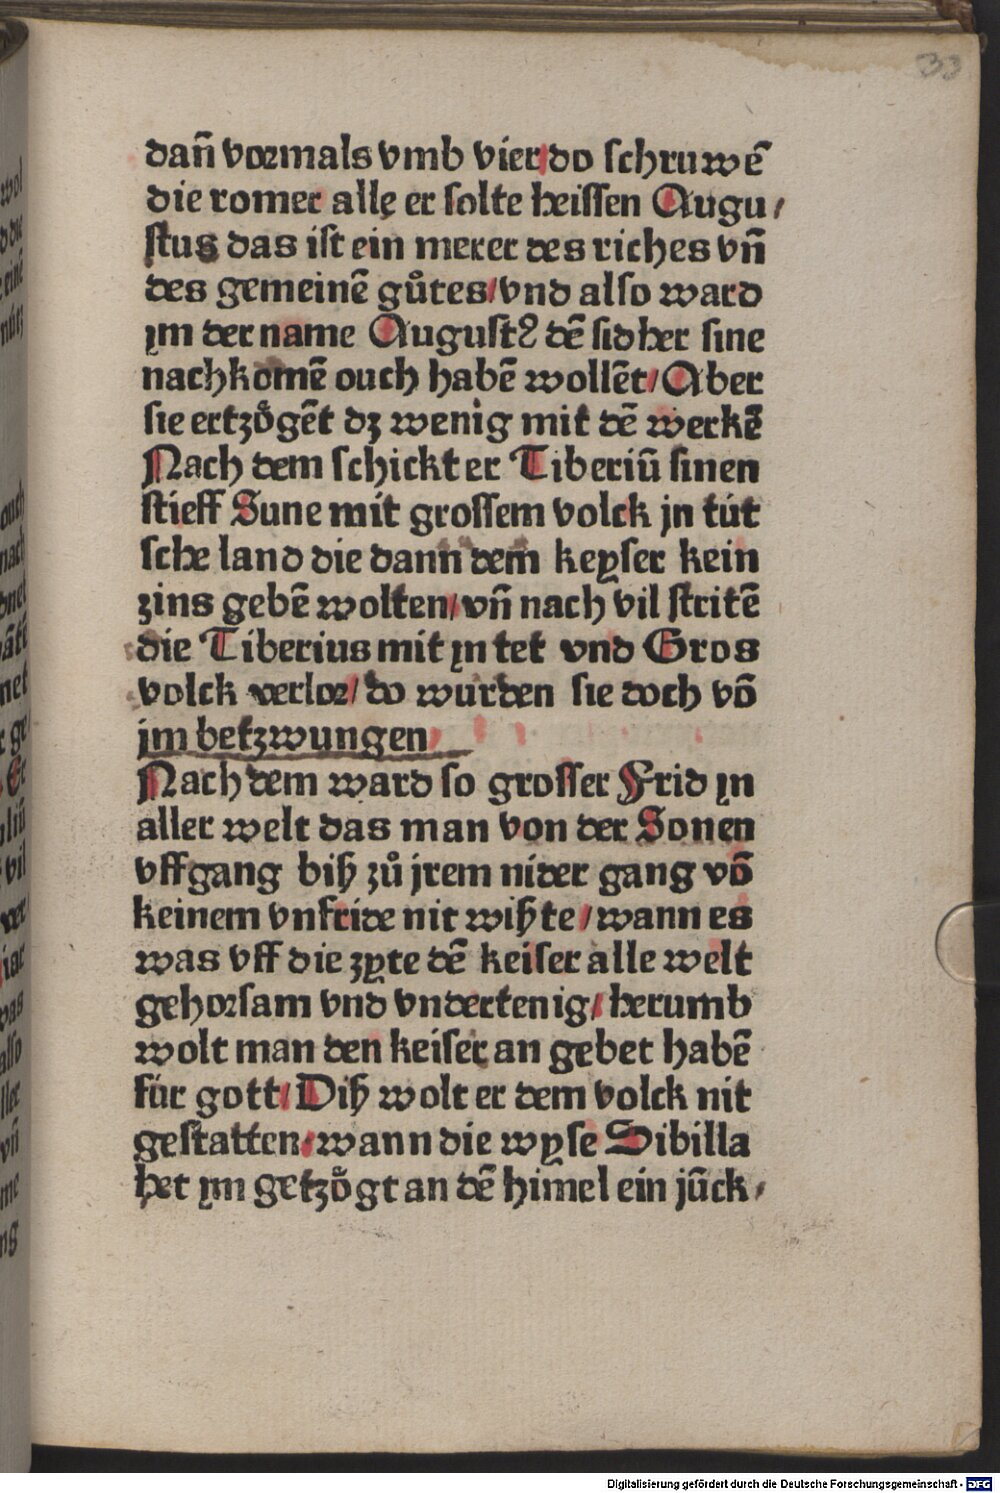 33
dañ vormals vmb vier/do schruwē
die romer alle er solte heissen Augu/
stus das ist ein merer des riches vñ
des gemeinē gůtes/vnd also ward
ym der name Augustꝰ dē sidher sine
nachkomē ouch habē wollēt/Aber
sie ertzo̊gēt dz wenig mit dē werkē
Nach dem schickt er Tiberiū sinen
stieff Sune mit grossem volck jn tút
sche land die dann dem keyser kein
zins gebē wolten/vñ nach vil stritē
die Tiberius mit yn tet vnd Gros
volck verlor/do wurden sie doch vō
jm betzwungen/
Nach dem ward so grosser Frid yn
aller welt das man von der Sonen
vffgang biß zů jrem nider gang vō
keinem vnfride nit wißte/wann es
was vff die zyte dē keiser alle welt
gehorsam vnd vndertenig/herumb
wolt man den keiser an gebet habē
für gott/Diß wolt er dem volck nit
gestatten/wann die wyse Sibilla
het ym getzo̊gt an dē himel ein jūck/
Digitalisierung gefördert durch die Deutsche Forschungsgemeinschaft - DFG